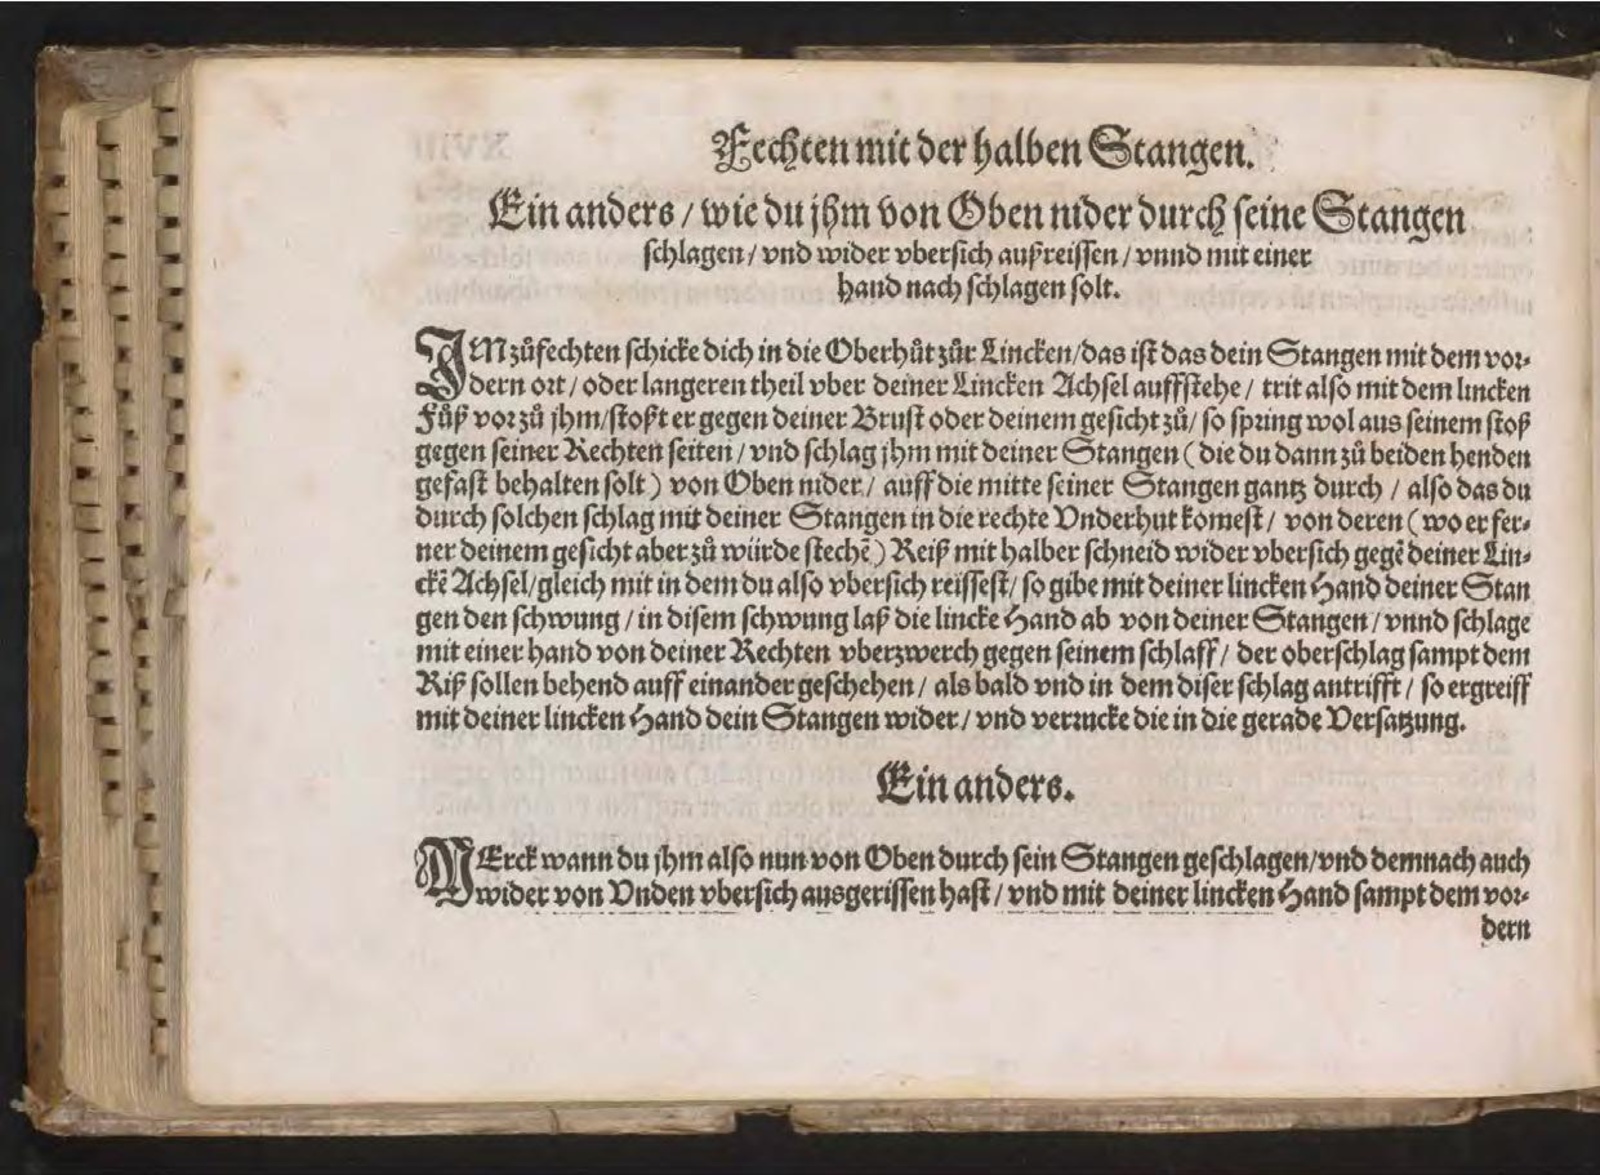 Fechten mit der halben Stangen.
Ein anders / wie du jhm von Oben nider durch seine Stangen
schlagen / vnd wider vbersich außreissen / vnnd mit einer
hand nach schlagen solt.
IM zůfechten schicke dich in die Oberhůt zůr Lincken/das ist das dein Stangen mit dem vor-
dern ort / oder langeren theil vber deiner Lincken Achsel auffstehe / trit also mit dem lincken
Fůß vor zů jhm/stoßt er gegen deiner Brust oder deinem gesicht zů/ so spring wol aus seinem stoß
gegen seiner Rechten seiten / vnd schlag jhm mit deiner Stangen ( die du dann zů beiden henden
gefast behalten solt ) von Oben nider / auff die mitte seiner Stangen gantz durch / also das du
durch solchen schlag mit deiner Stangen in die rechte Vnderhut komest / von deren ( wo er fer-
ner deinem gesicht aber zů würde stechẽ ) Reiß mit halber schneid wider vbersich gegẽ deiner Lin-
ckẽ Achsel/gleich mit in dem du also vbersich reissest/ so gibe mit deiner lincken Hand deiner Stan
gen den schwung / in disem schwung laß die lincke Hand ab von deiner Stangen / vnnd schlage
mit einer hand von deiner Rechten vberzwerch gegen seinem schlaff / der oberschlag sampt dem
Riß sollen behend auff einander geschehen / als bald vnd in dem diser schlag antrifft / so ergreiff
mit deiner lincken Hand dein Stangen wider / vnd verzucke die in die gerade Versatzung.
Ein anders.
MErck wann du jhm also nun von Oben durch sein Stangen geschlagen/vnd demnach auch
wider von Vnden vbersich ausgerissen hast / vnd mit deiner lincken Hand sampt dem vor-
dern